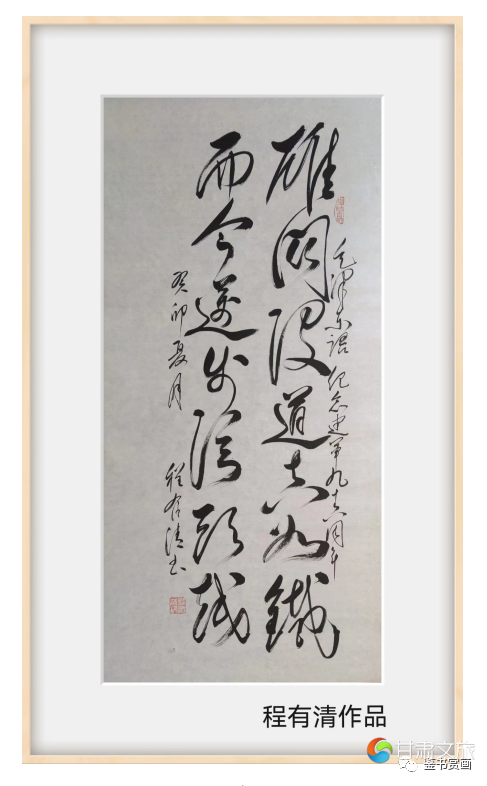 雄関漫道真如鐵
而今邁步從头越
毛泽东语 纪念建军九十六周年
癸卯夏月 程有清书
程有清作品
甘肃文旅
鉴书赏画